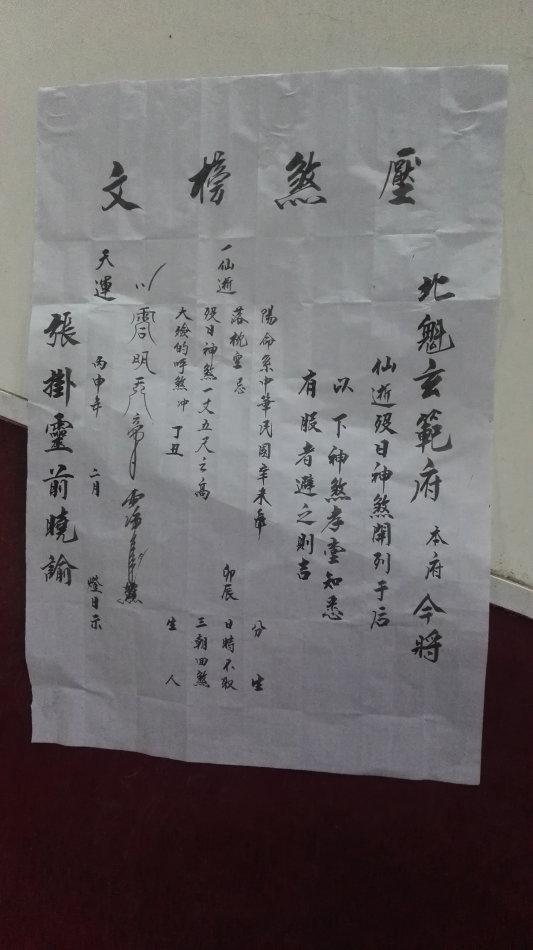 壓煞榜文
北魁玄範府 本府今將
仙逝歿日神煞開列于后
以下神煞孝堂知悉
有服者避之則吉
陽命系中華民國辛未年 分生
一仙逝 落枕空忌 卯辰 日時不取
歿日神煞一丈五尺之高 三朝回煞
大殮的呼煞冲 丁丑 生人
天運 丙申年 二月 燈日示
張掛靈前曉諭